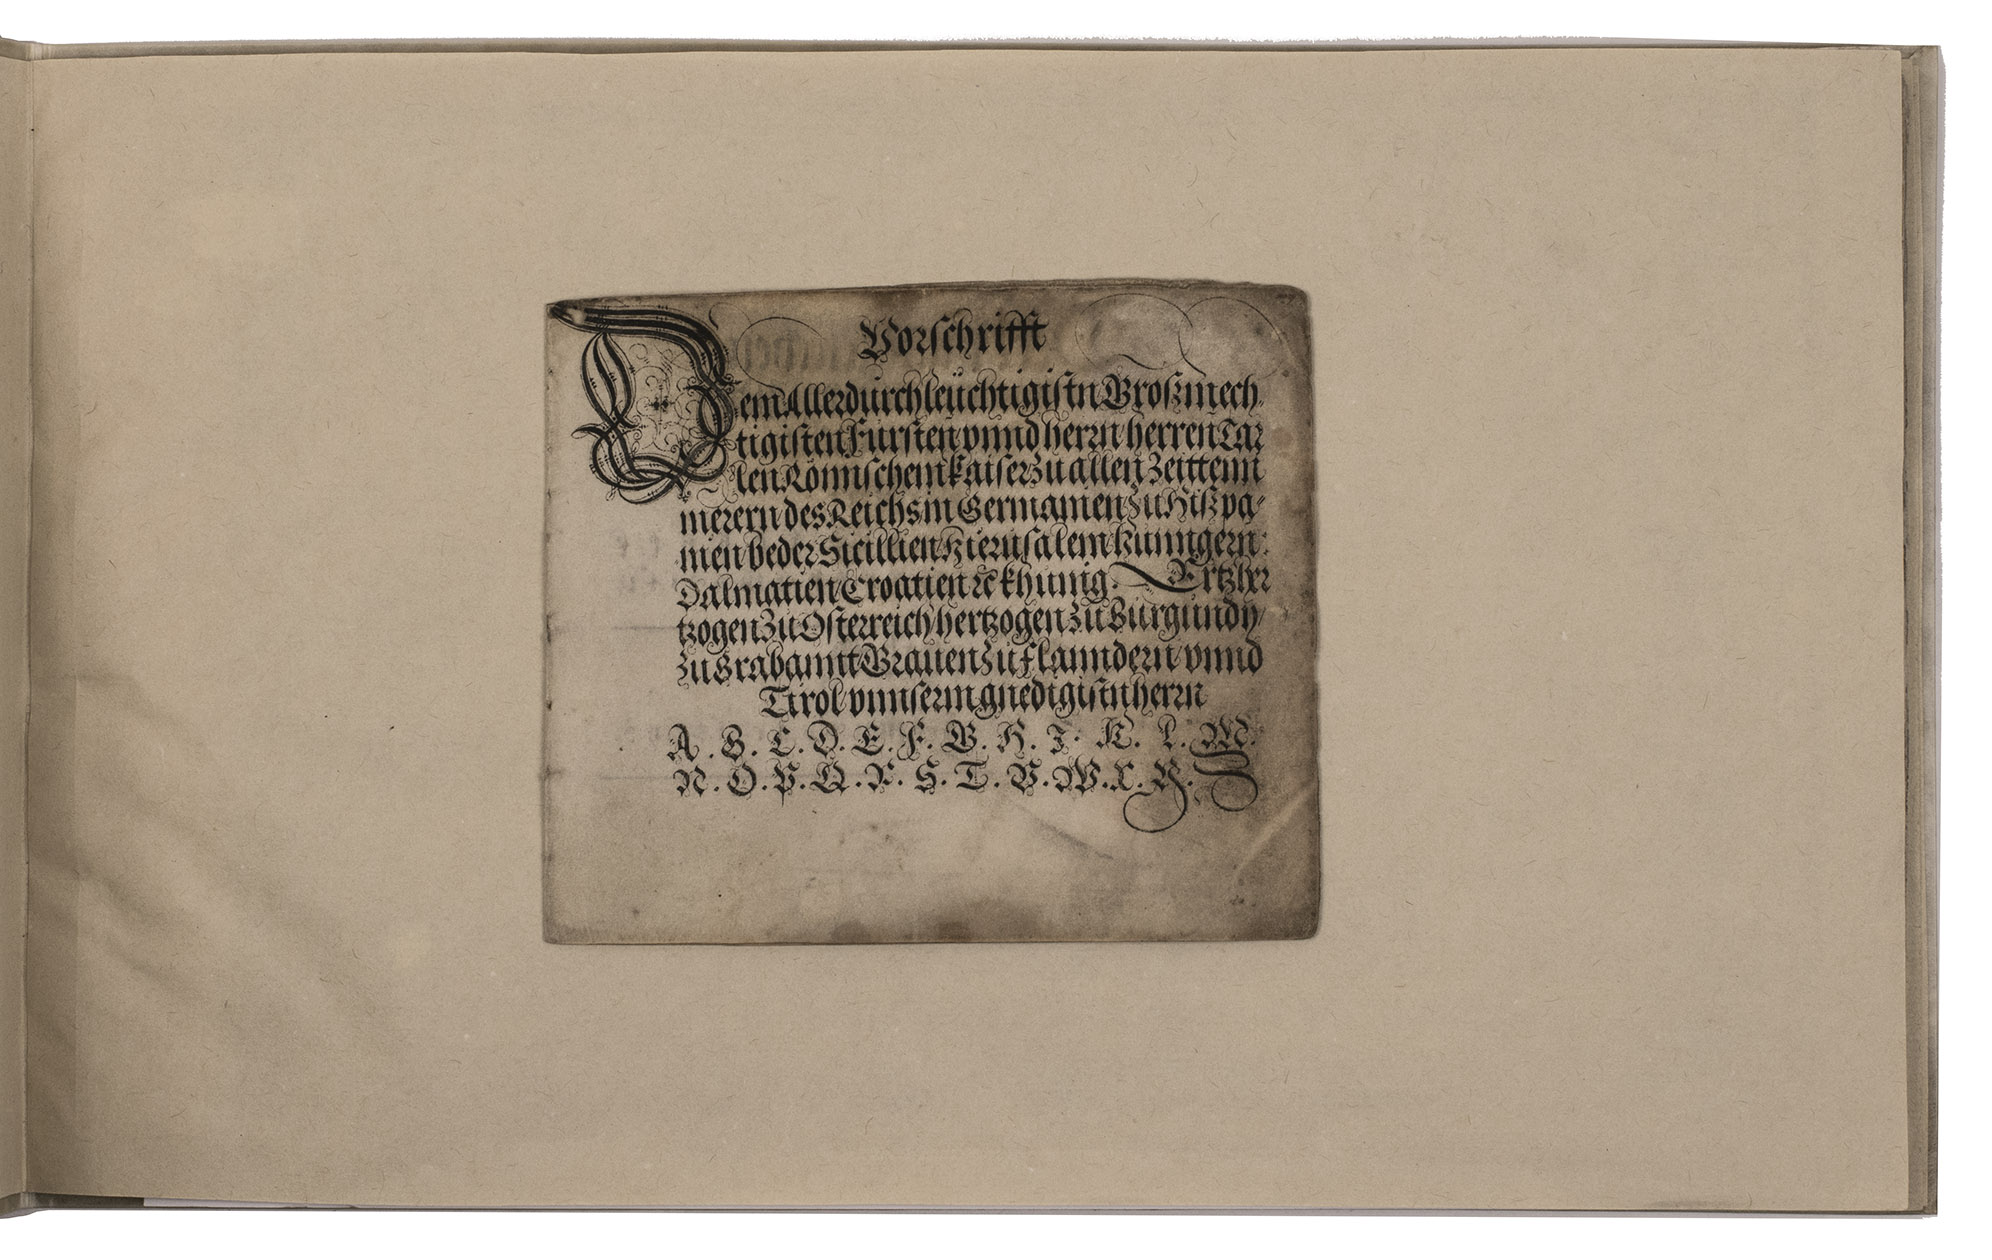 Vorschrifft
Dem Allerdurchleüchtigistn Großmech-
tigisten Fürsten vnnd herrn herren Car
len Römischem kaiser zu allen Zeittenn
merern des Reichs in Germanien zu Hißpa-
nien beder Sicillien Hierusalem Hunngern:
Dalmatien Croatien ꝛc khunig. Ertzher
tzogen zu Osterreich hertzogen zu Burgundy
zu Brabannt Grauen zu Flanndern vnnd
Tirol vnnserm gnedigistn herrn
A. B. C. D. E. F. G. H. I. K. L. M.
N. O. P. Q. R. S. T. V. W. X. Y. Z